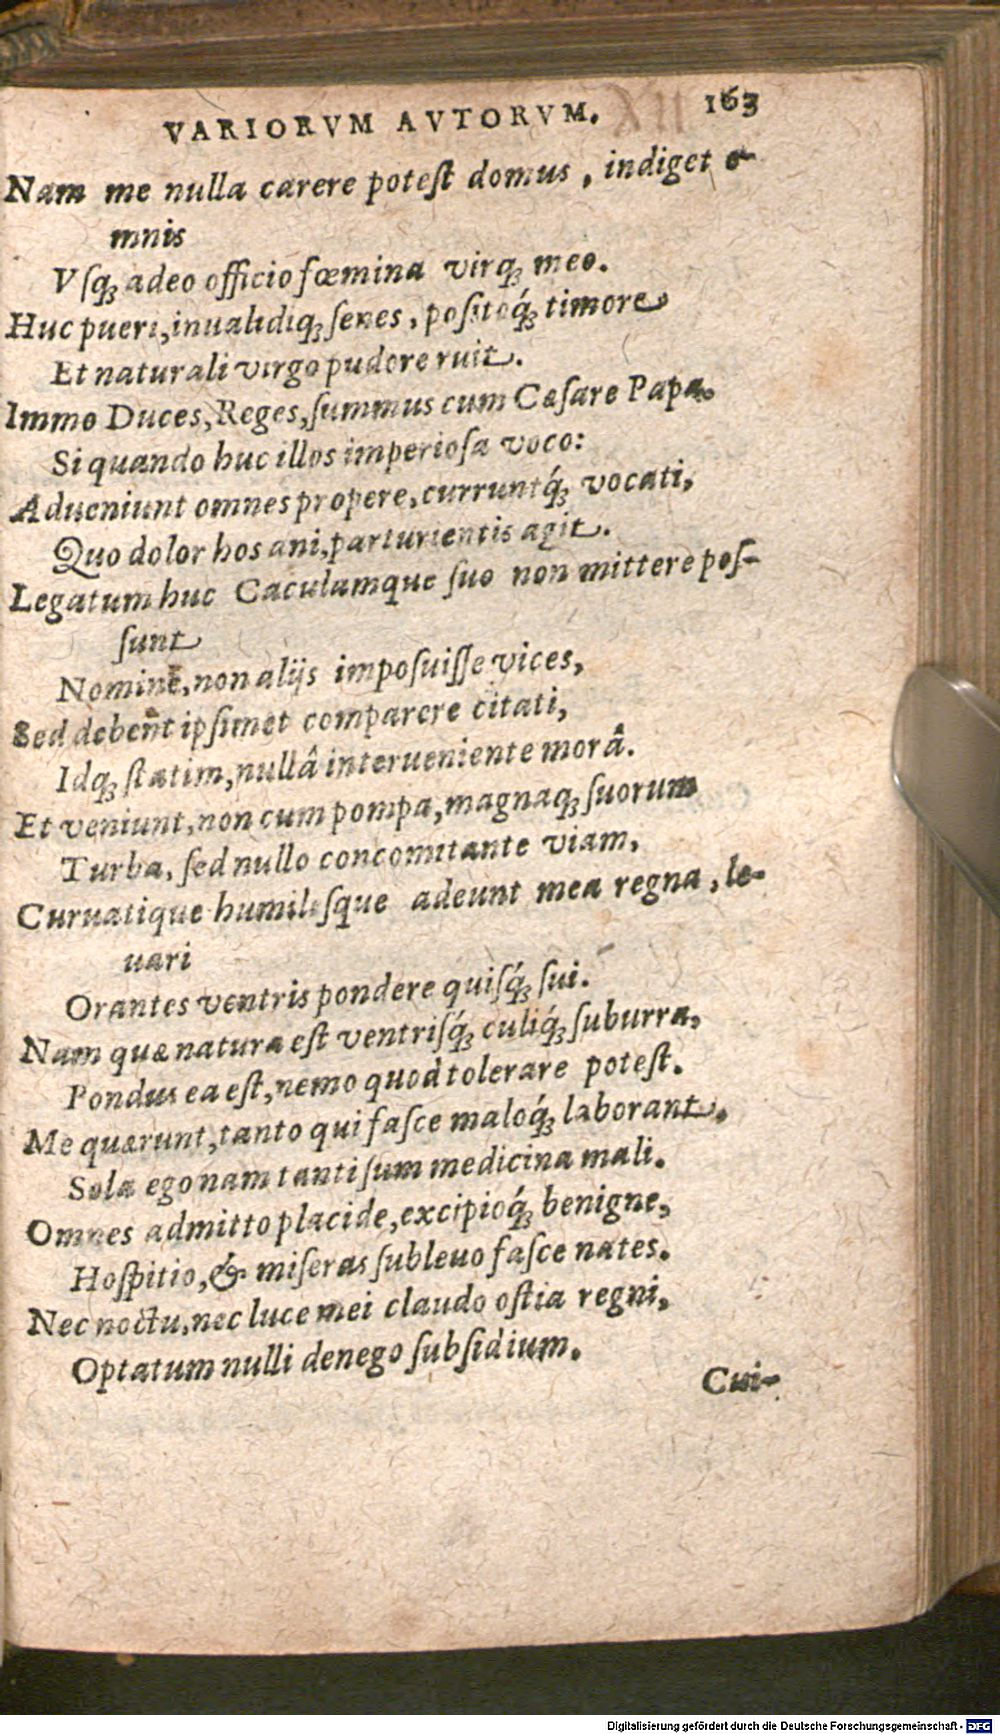 VARIORVM AVTORVM. 163
Nam me nulla carere poteſt domus, indiget o-
mnis
Vſq́ꝫ adeo officio fœmina virqꝫ meo.
Huc pueri, inualidiqꝫ ſenes, poſitoq́ꝫ timore
Et naturali virgo pudore ruit.
Immo Duces, Reges, ſummus cum Cæſare Papa.
Si quando huc illos imperioſa voco:
Adueniunt omnes propere, curruntq́ꝫ vocati,
Quo dolor hos ani, parturientis agit.
Legatum huc Caculamque ſuo non mittere poſ-
ſunt
Nomine, non alijs impoſuiſſe vices,
Sed debent ipſimet comparere citati,
Idqꝫ ſtatim, nullâ interueniente morâ.
Et veniunt, non cum pompa, magnaqꝫ ſuorum
Turba, ſed nullo concomitante viam,
Curuatique humileſque adeunt mea regna, le-
uari
Orantes ventris pondere quiſq́ꝫ ſui.
Nam quæ natura eſt ventriſq́ꝫ culiq́ꝫ ſuburra,
Pondus ea eſt, nemo quod tolerare poteſt.
Me quærunt, tanto qui faſce maloq́ꝫ laborant.
Sola ego nam tanti ſum medicina mali.
Omnes admitto placide, excipioq́ꝫ benigne,
Hoſpitio, & miſeras ſubleuo faſce nates.
Nec noctu, nec luce mei claudo oſtia regni,
Optatum nulli denego ſubſidium.
Cui-
Digitalisierung gefördert durch die Deutsche Forschungsgemeinschaft - DFG